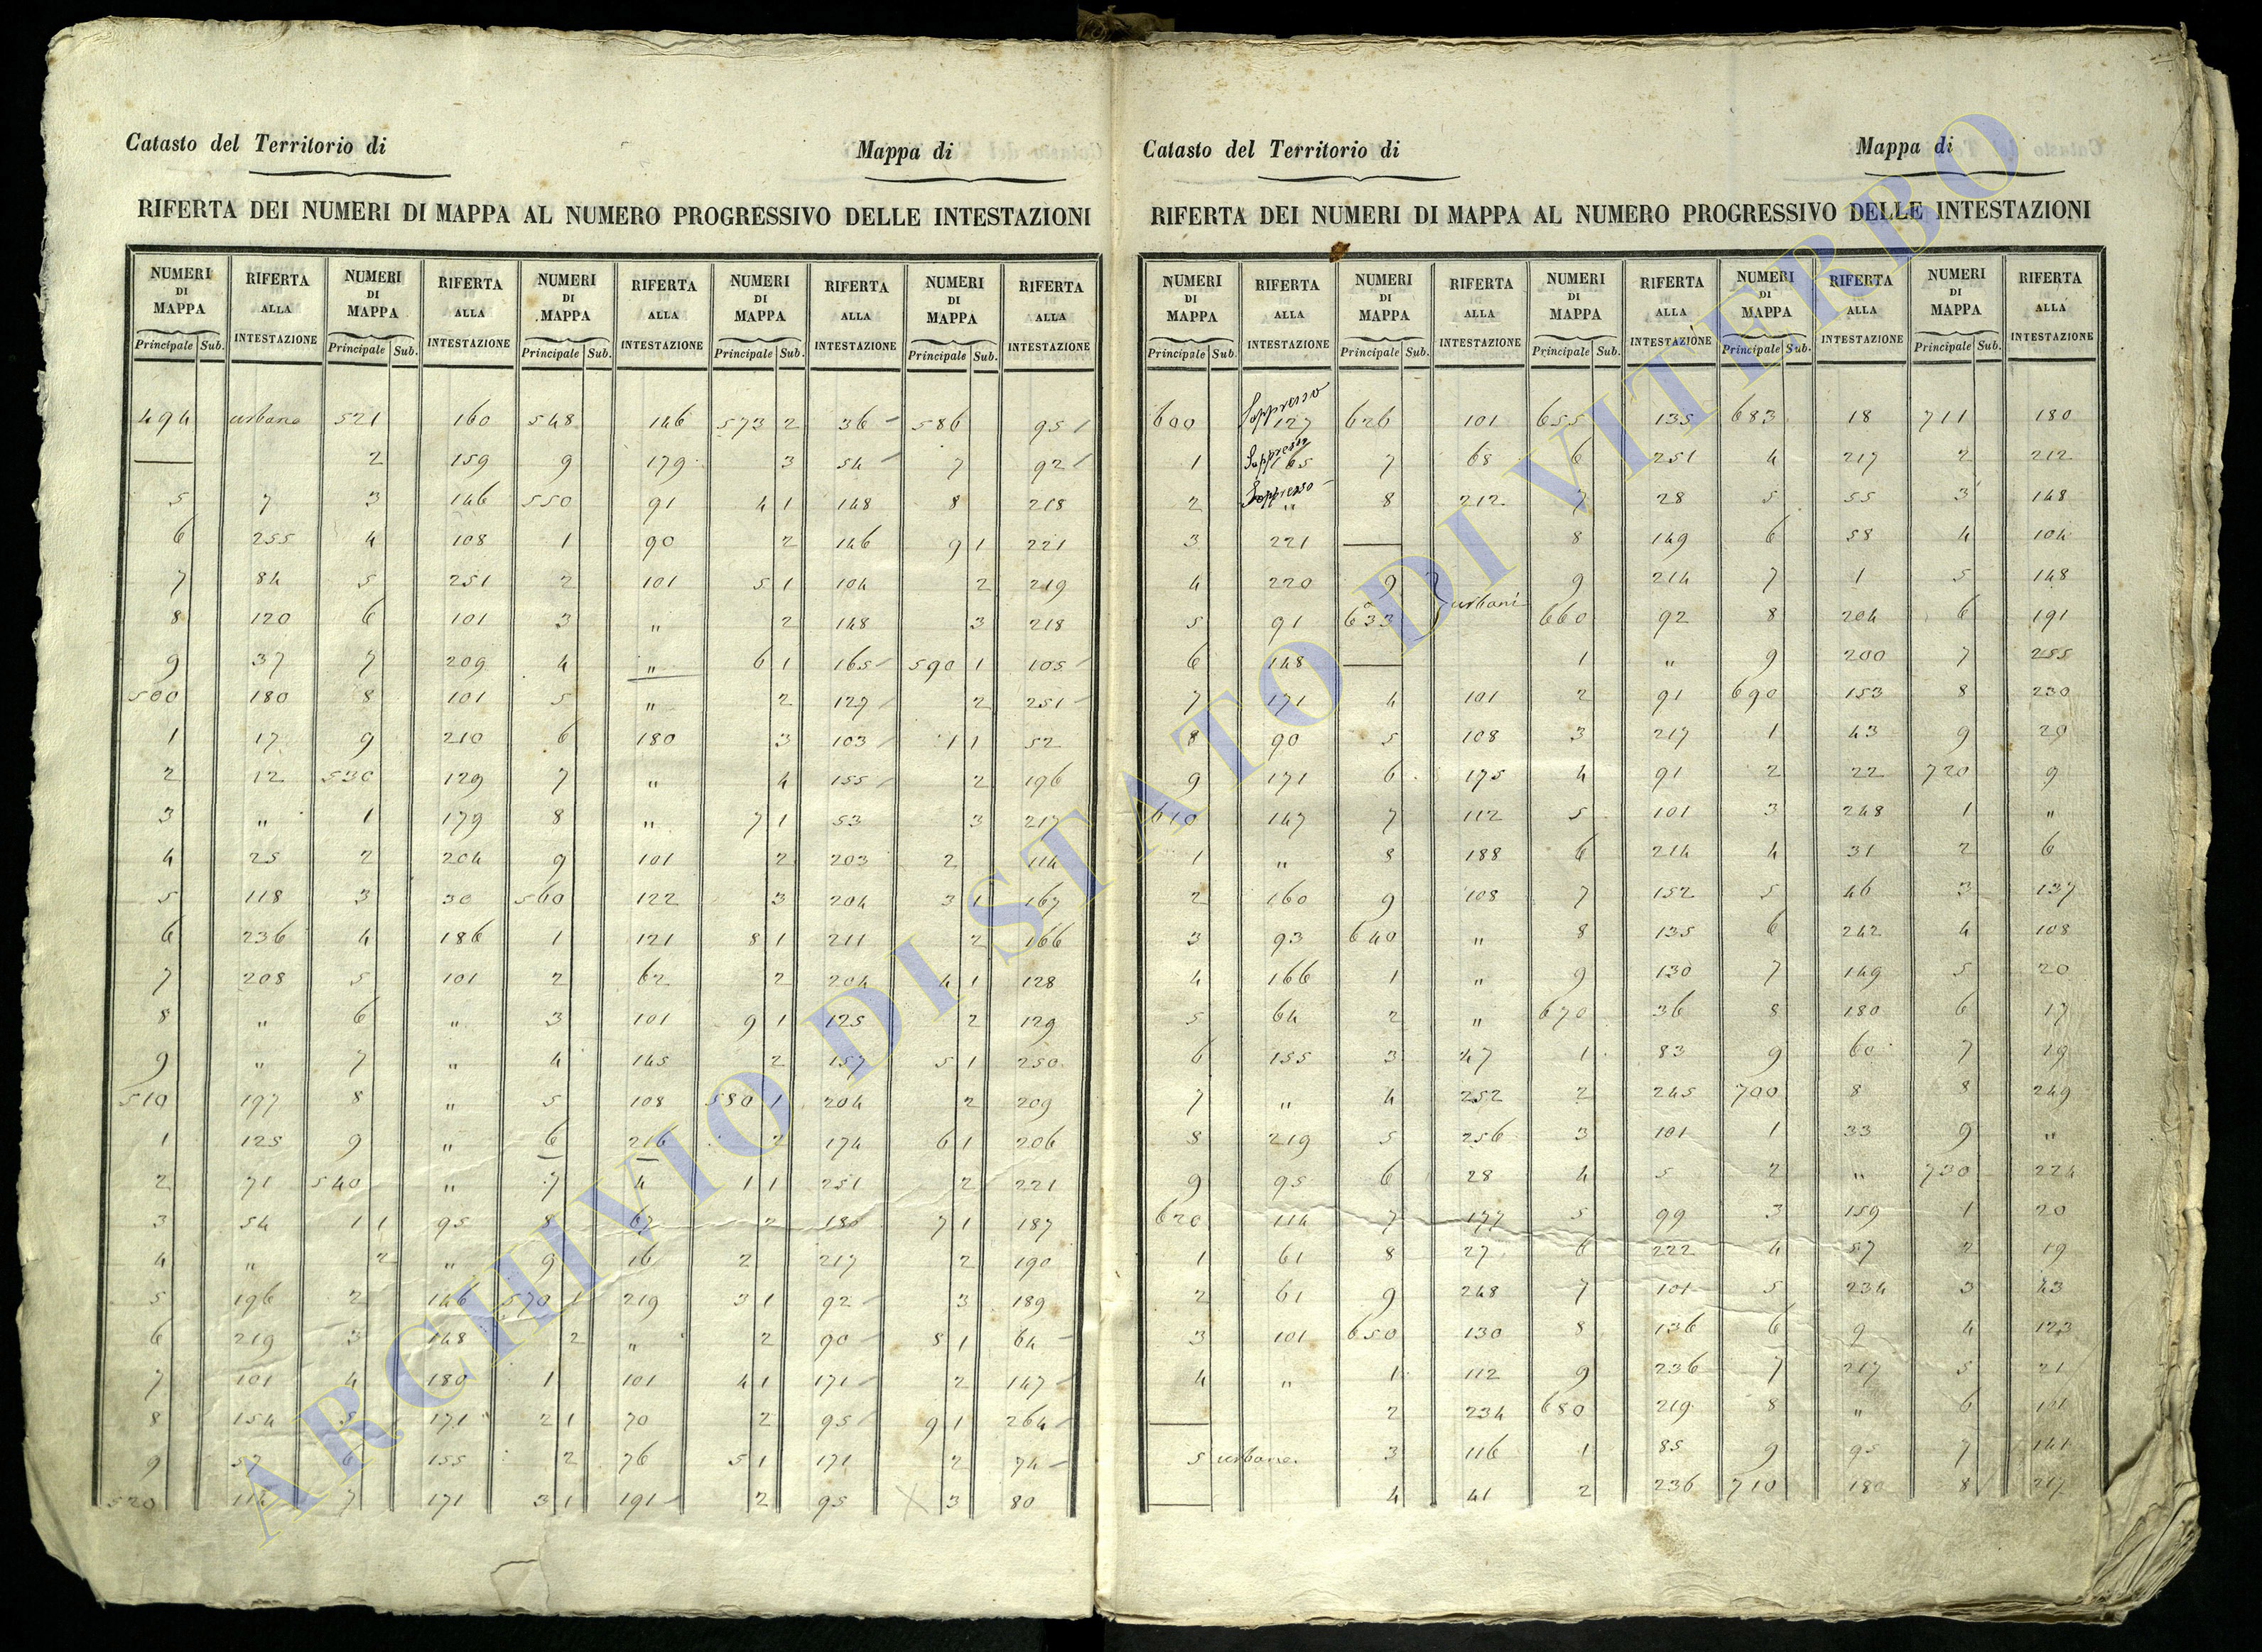 Catasto del Territorio di
Mappa di
RIFERTA DEI NUMERI DI MAPPA AL NUMERO PROGRESSIVO DELLE INTESTAZIONI
NUMERI DI MAPPA RIFERTA ALLA INTESTAZIONE NUMERI DI MAPPA RIFERTA ALLA INTESTAZIONE NUMERI DI MAPPA RIFERTA ALLA INTESTAZIONE NUMERI DI MAPPA RIFERTA ALLA INTESTAZIONE NUMERI DI MAPPA RIFERTA ALLA INTESTAZIONE
Principale Sub. Principale Sub. Principale Sub. Principale Sub. Principale Sub.
494 urbano 521 160 548 146 573 2 36 586 95
2 159 9 179 3 54 7 92
5 7 3 146 550 91 4 1 148 8 218
6 255 4 108 1 90 2 146 9 1 221
7 84 5 251 2 101 5 1 104 2 219
8 120 6 101 3 " 2 148 3 218
9 37 7 209 4 " 6 1 165 590 1 105
500 180 8 101 5 " 2 127 2 251
1 17 9 210 6 180 3 103 1 1 52
2 12 530 129 7 " 4 155 2 196
3 " 1 179 8 " 7 1 53 3 217
4 25 2 204 9 101 2 203 2 114
5 118 3 30 560 122 3 204 3 1 167
6 236 4 186 1 121 8 1 211 2 166
7 208 5 101 2 62 2 204 4 1 128
8 " 6 " 3 101 9 1 125 2 129
9 " 7 " 4 145 2 157 5 1 250
510 197 8 " 5 108 580 1 204 2 209
1 125 9 " 6 216 2 174 6 1 206
2 71 540 " 7 4 1 1 251 2 221
3 54 1 1 95 8 67 2 180 7 1 187
4 " 2 " 9 16 2 217 2 190
5 196 2 146 570 1 219 3 1 92 3 189
6 219 3 148 2 " 2 90 8 1 64
7 101 4 180 1 101 4 1 171 2 147
8 154 5 171 2 1 70 2 95 9 1 264
9 57 6 155 2 76 5 1 171 2 74
520 112 7 171 3 1 191 2 95 3 80
Catasto del Territorio di
Mappa di
RIFERTA DEI NUMERI DI MAPPA AL NUMERO PROGRESSIVO DELLE INTESTAZIONI
NUMERI DI MAPPA RIFERTA ALLA INTESTAZIONE NUMERI DI MAPPA RIFERTA ALLA INTESTAZIONE NUMERI DI MAPPA RIFERTA ALLA INTESTAZIONE NUMERI DI MAPPA RIFERTA ALLA INTESTAZIONE NUMERI DI MAPPA RIFERTA ALLA INTESTAZIONE
Principale Sub. Principale Sub. Principale Sub. Principale Sub. Principale Sub.
600 Soppresso 127 626 101 655 135 683 18 711 180
1 Soppresso 165 7 68 6 251 4 217 2 212
2 Soppresso " 8 212 7 28 5 55 3 148
3 221 8 149 6 58 4 104
4 220 9 urbani 9 214 7 1 5 148
5 91 633 660 92 8 204 6 191
6 148 1 " 9 200 7 255
7 171 4 101 2 91 690 153 8 230
8 90 5 108 3 217 1 43 9 20
9 171 6 175 4 91 2 22 720 9
610 147 7 112 5 101 3 248 1 "
1 " 8 188 6 214 4 31 2 6
2 160 9 108 7 152 5 46 3 137
3 93 640 " 8 135 6 242 4 108
4 166 1 " 9 130 7 149 5 20
5 64 2 " 670 36 8 180 6 17
6 155 3 47 1 83 9 60 7 19
7 " 4 252 2 245 700 8 8 249
8 219 5 256 3 101 1 33 9 "
9 95 6 28 4 5 2 " 730 224
620 114 7 177 5 99 3 159 1 20
1 61 8 27 6 222 4 57 2 19
2 61 9 248 7 101 5 234 3 43
3 101 650 130 8 136 6 9 4 123
4 " 1 112 9 236 7 217 5 21
2 234 680 219 8 " 6 141
5 urbano 3 116 1 85 9 95 7 141
4 41 2 236 710 180 8 217
ARCHIVIO DI STATO DI VITERBO